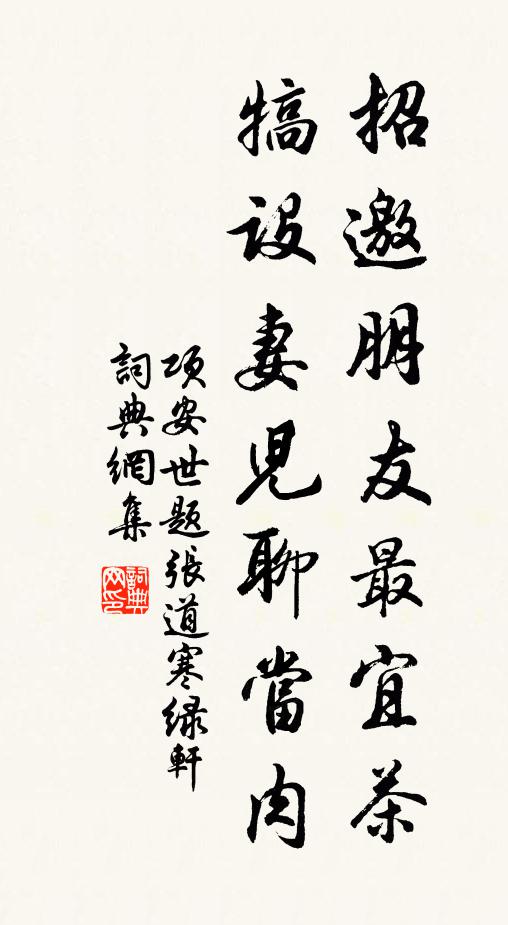 招邀朋友最宜茶
犒設妻兒聊當肉
項安世題張道寒綠軒
詞典網集
詞典网印